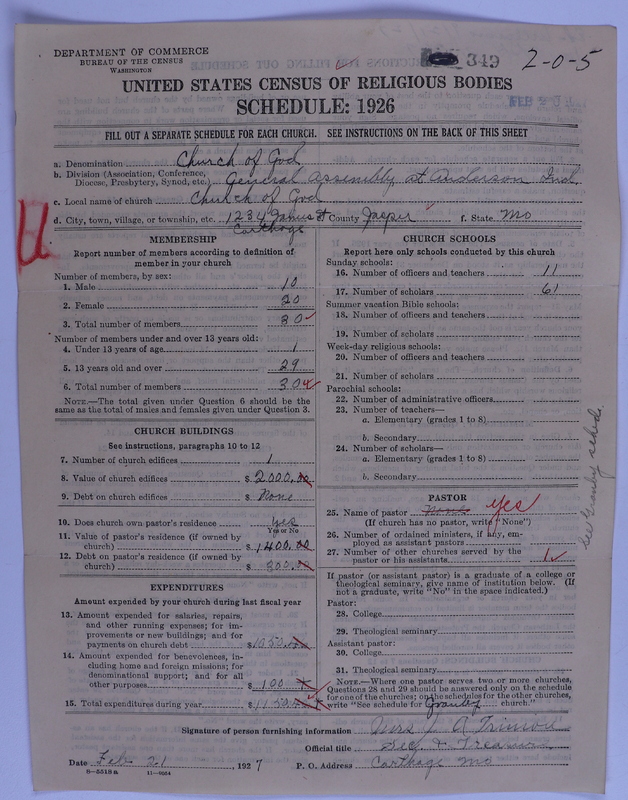 DEPARTMENT OF COMMERCE
BUREAU OF THE CENSUS
WASHINGTON
349
2-0-5
UNITED STATES CENSUS OF RELIGIOUS BODIES
SCHEDULE: 1926
FILL OUT A SEPARATE SCHEDULE FOR EACH CHURCH. SEE INSTRUCTIONS ON THE BACK OF THIS SHEET
a. Denomination Church of God
b. Division (Association, Conference, Diocese, Presbytery, Synod, etc.) General Assembly at Anderson Ind.
c. Local name of church Church of God
d. City, town, village, or township, etc. 1234 St Carthage County Jasper f. State Mo
MEMBERSHIP
Report number of members according to definition of
member in your church
Number of members, by sex:
1. Male 10
2. Female 20
3. Total number of members 30
Number of members under and over 13 years old:
4. Under 13 years of age 1
5. 13 years old and over 29
6. Total number of members 30
NOTE.—The total given under Question 6 should be
same as the total of males and females given under Question 3.
CHURCH BUILDINGS
See instructions, paragraphs 10 to 12
7. Number of church edifices 1
8. Value of church edifices $ 2000.00
9. Debt on church edifices $ None
10. Does church own pastor's residence yes
Yes or No
11. Value of pastor's residence (if owned by
church) $ 1400.00
12. Debt on pastor's residence (if owned by
church) $ 300.00
EXPENDITURES
Amount expended by your church during last fiscal year
13. Amount expended for salaries, repairs,
and other running expenses; for im-
provements or new buildings; and for
payments on church debt $ 1050.00
14. Amount expended for benevolences, in-
cluding home and foreign missions; for
denominational support; and for all
other purposes $ 100
15. Total expenditures during year $ 1150.00
CHURCH SCHOOLS
Report here only schools conducted by this church
Sunday schools:
16. Number of officers and teachers 11
17. Number of scholars 61
Summer vacation Bible schools:
18. Number of officers and teachers
19. Number of scholars
Week-day religious schools:
20. Number of officers and teachers
21. Number of scholars
Parochial schools:
22. Number of administrative officers
23. Number of teachers—
a. Elementary (grades 1 to 8)
b. Secondary
24. Number of scholars—
a. Elementary (grades 1 to 8)
b. Secondary
PASTOR
25. Name of pastor None yes
(If church has no pastor, write "None")
26. Number of ordained ministers, if any, em-
ployed as assistant pastors
27. Number of other churches served by the
pastor or his assistants 1
If pastor (or assistant pastor) is a graduate of a college or
theological seminary, give name of institution below. (If
not a graduate, write "No" in the space indicated.)
Pastor:
28. College
29. Theological seminary
Assistant pastor:
30. College
31. Theological seminary
NOTE.—Where one pastor serves two or more churches,
Questions 28 and 29 should be answered only on the schedule
for one of the churches; on the schedules for the other churches,
write "See schedule for Granby church."
see Granby sched.
Signature of person furnishing information Mrs J. A
Official title Sec. & Treasurer
Date Feb 21, 1927 P. O. Address Carthage Mo
8—5518a 11—9554